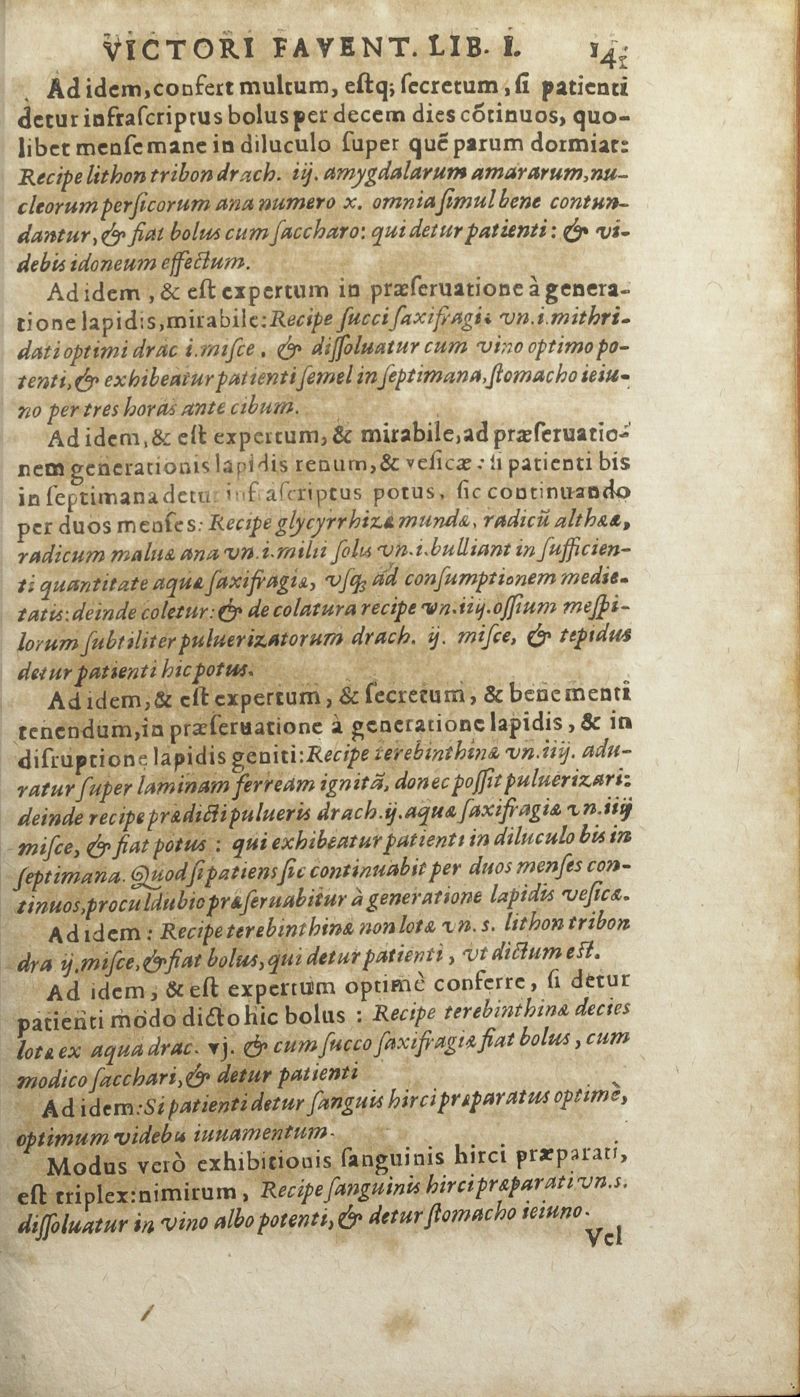 VICTORI FAVENT. LIB. I. 141
Ad idem, confert multum, eſtq; ſecretum, ſi patienti
detur infraſcriptus bolus per decem dies cõtinuos, quo-
libet menſe mane in diluculo ſuper quẽ parum dormiat:
Recipe lithon tribon drach. iij. amygdalarum amararum, nu-
cleorum perſicorum ana numero x. omnia ſimul bene contun-
dantur, & fiat bolus cum ſaccharo: qui detur patienti: & vi-
debis idoneum effectum.
Ad idem, & eſt expertum in præſeruatione à genera-
tione lapidis, mirabile: Recipe ſucci ſaxifragiæ vn. i. mithri-
dati optimi drac i. miſce. & diſſoluatur cum vino optimo po-
tenti, & exhibeatur patienti ſemel in ſeptimana, ſtomacho ieiu-
no per tres horas ante cibum.
Ad idem, & eſt expertum, & mirabile, ad præſeruatio-
nem generationis lapidis renum, & veſicæ: ſi patienti bis
in ſeptimana detur infraſcriptus potus, ſic continuando
per duos menſes: Recipe glycyrrhizæ mundæ, radicũ altheæ,
radicum maluæ ana vn. i. milii ſolis vn. i. bulliant in ſufficien-
ti quantitate aquæ ſaxifragiæ, vſq; ad conſumptionem medie-
tatis: deinde coletur: & de colatura recipe vn. iiij. oſſium meſpi-
lorum ſubtiliter puluerizatorum drach. ij. miſce, & tepidus
detur patienti hic potus.
Ad idem, & eſt expertum, & ſecretum, & bene menti
tenendum, in præſeruatione à generatione lapidis, & in
diſruptione lapidis geniti: Recipe terebinthinæ vn. iiij. adu-
ratur ſuper laminam ferream ignitã, donec poſſit puluerizari:
deinde recipe prædicti pulueris drach. ij. aquæ ſaxifragiæ vn. iiij
miſce, & fiat potus : qui exhibeatur patienti in diluculo bis in
ſeptimana. Quod ſi patiens ſic continuabit per duos menſes con-
tinuos, proculdubio præſeruabitur à generatione lapidis veſicæ.
Ad idem : Recipe terebinthinæ non lotæ vn. s. lithon tribon
dra ij. miſce, & fiat bolus, qui detur patienti, vt dictum eſt.
Ad idem, & eſt expertum optimè conferre, ſi detur
patienti modo dicto hic bolus : Recipe terebinthinæ decies
lotæ ex aqua drac. vj. & cum ſucco ſaxifragiæ fiat bolus, cum
modico ſacchari, & detur patienti
Ad idem: Si patienti detur ſanguis hirci præparatus optime,
optimum videbis iuuamentum.
Modus verò exhibitionis ſanguinis hirci præparati,
eſt triplex: nimirum, Recipe ſanguinis hirci præparati vn. s.
diſſoluatur in vino albo potenti, & detur ſtomacho ieiuno.
Vel